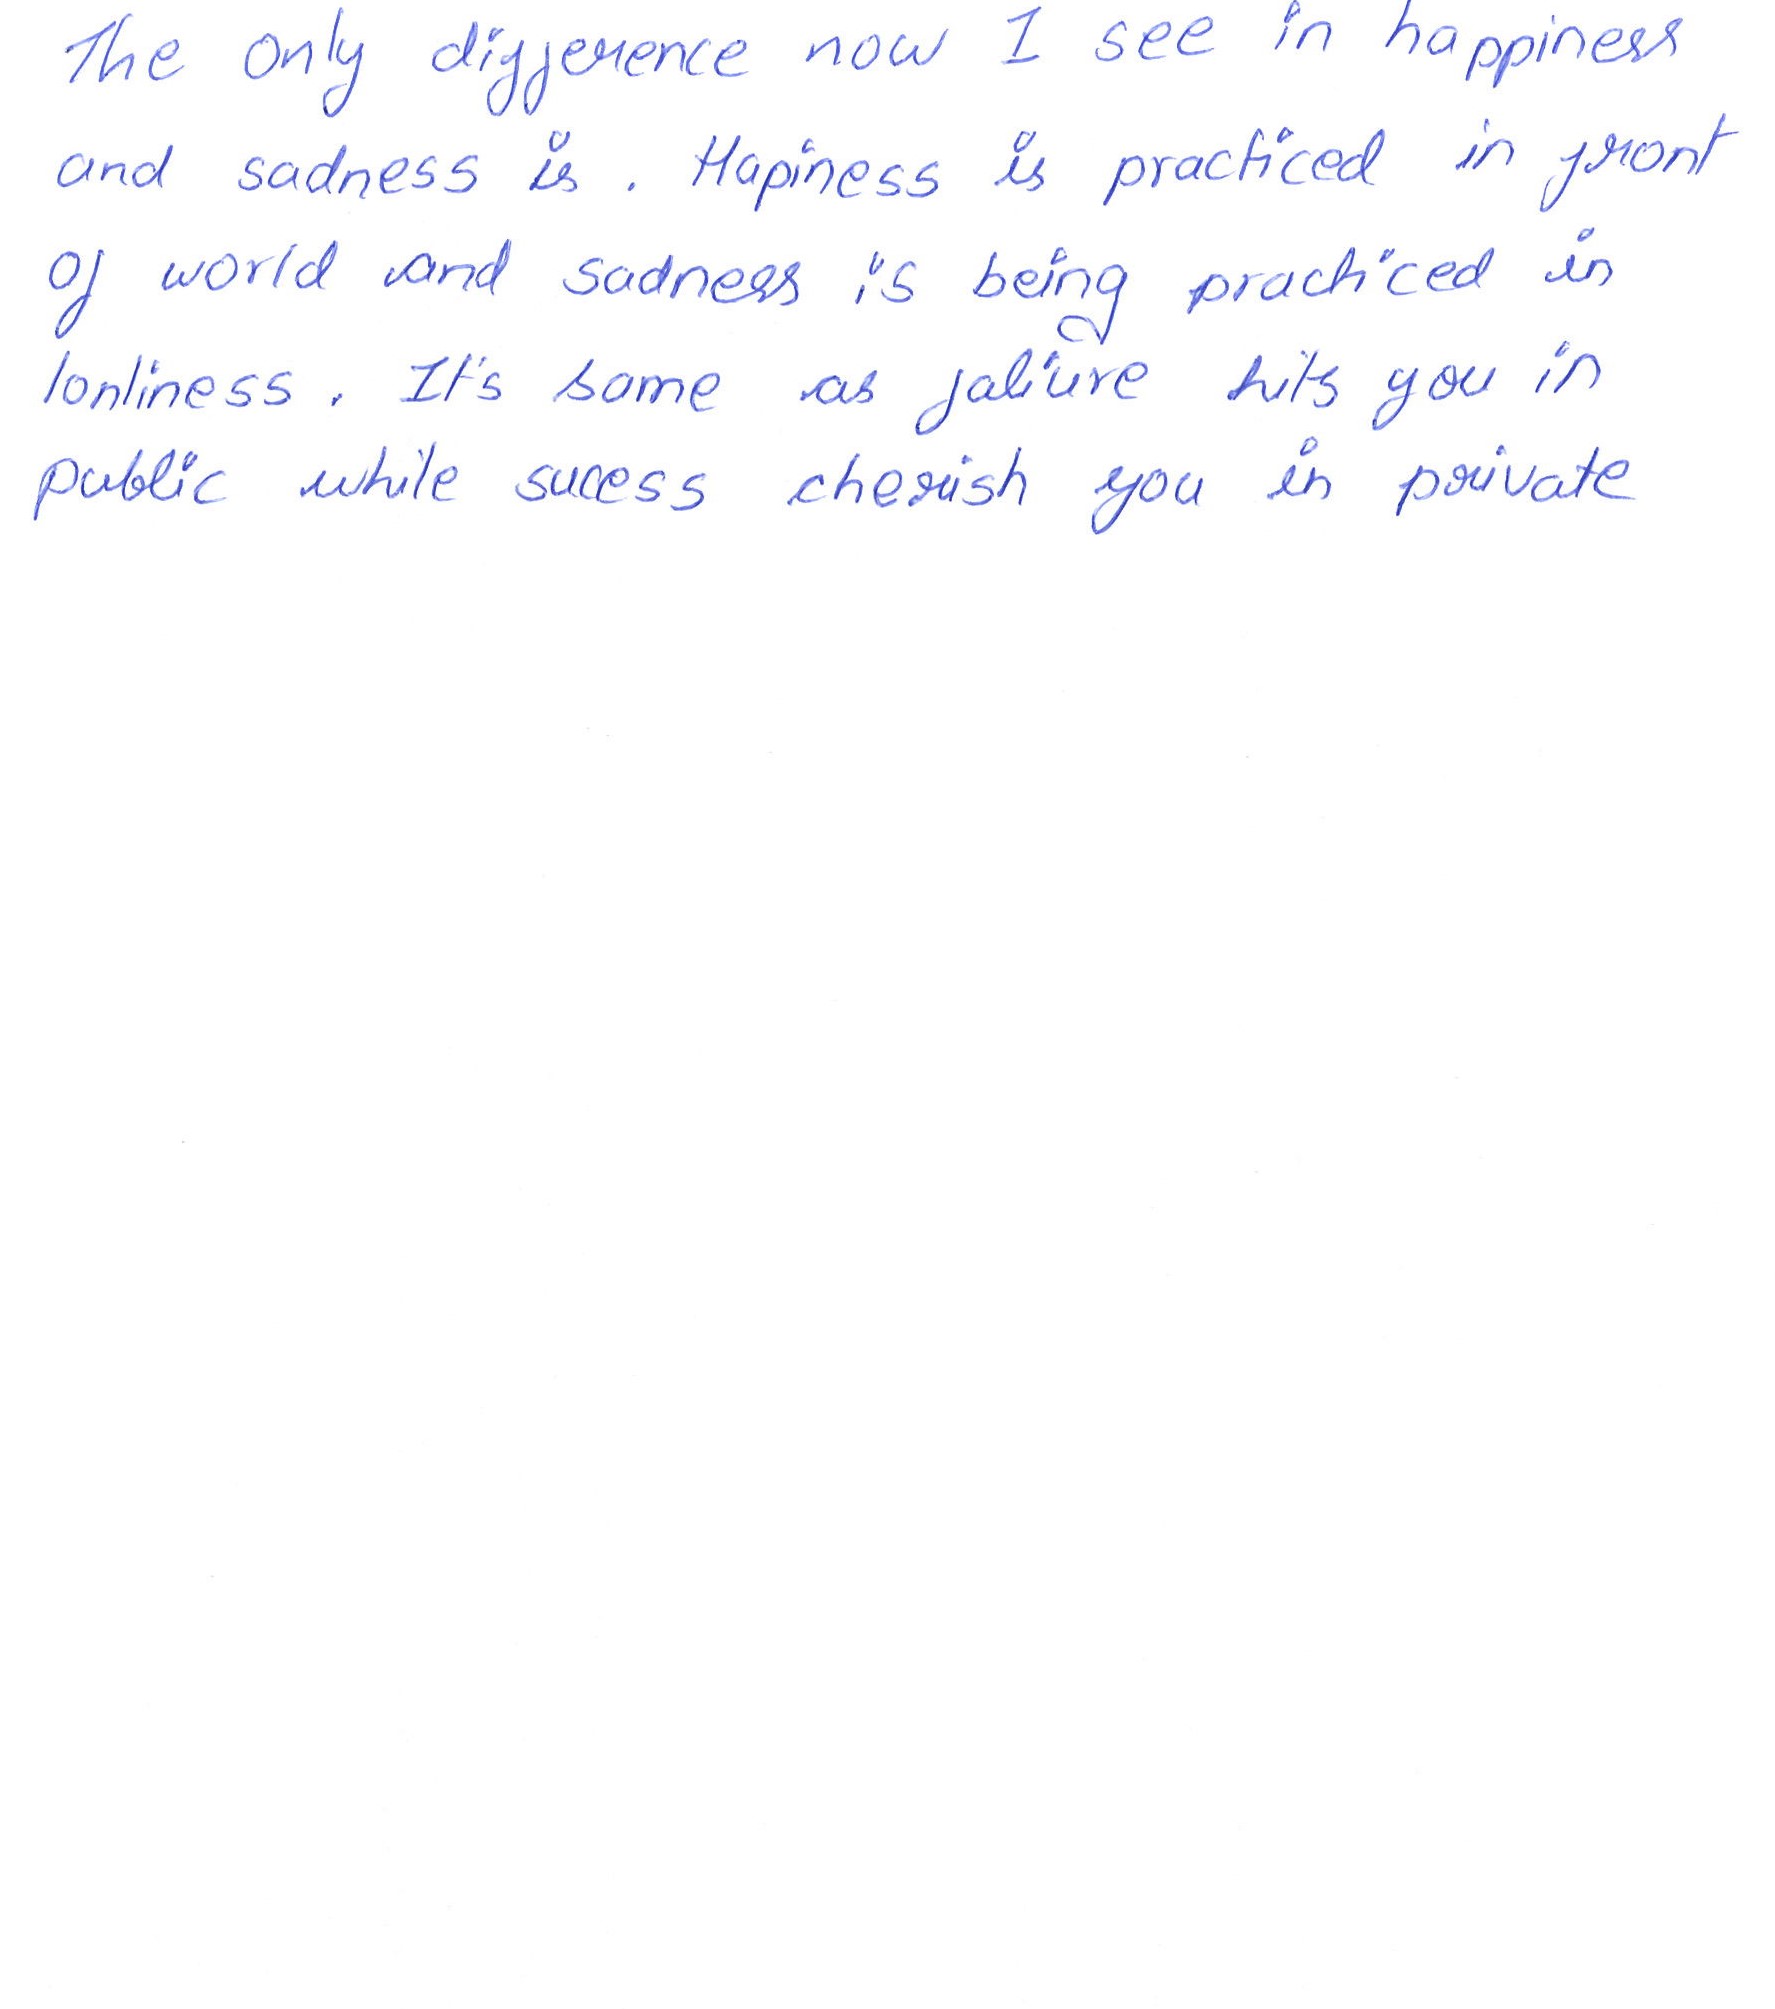 The only difference now I see in happiness
and sadness is . Hapiness is practiced in front
of world and sadness is being practiced in
lonliness . It's same as faliure hits you in
public while sucess cherish you in private